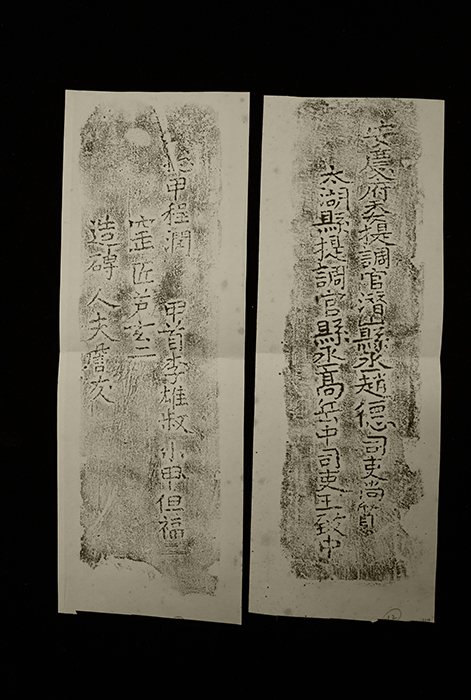 安慶府委提調官潛縣丞趙德司吏尚質
太湖縣提調官縣丞高岳中司吏王致中
總甲程潤 甲首李雄叔小甲但福二
窑匠芦玄二
造磚人夫詹友